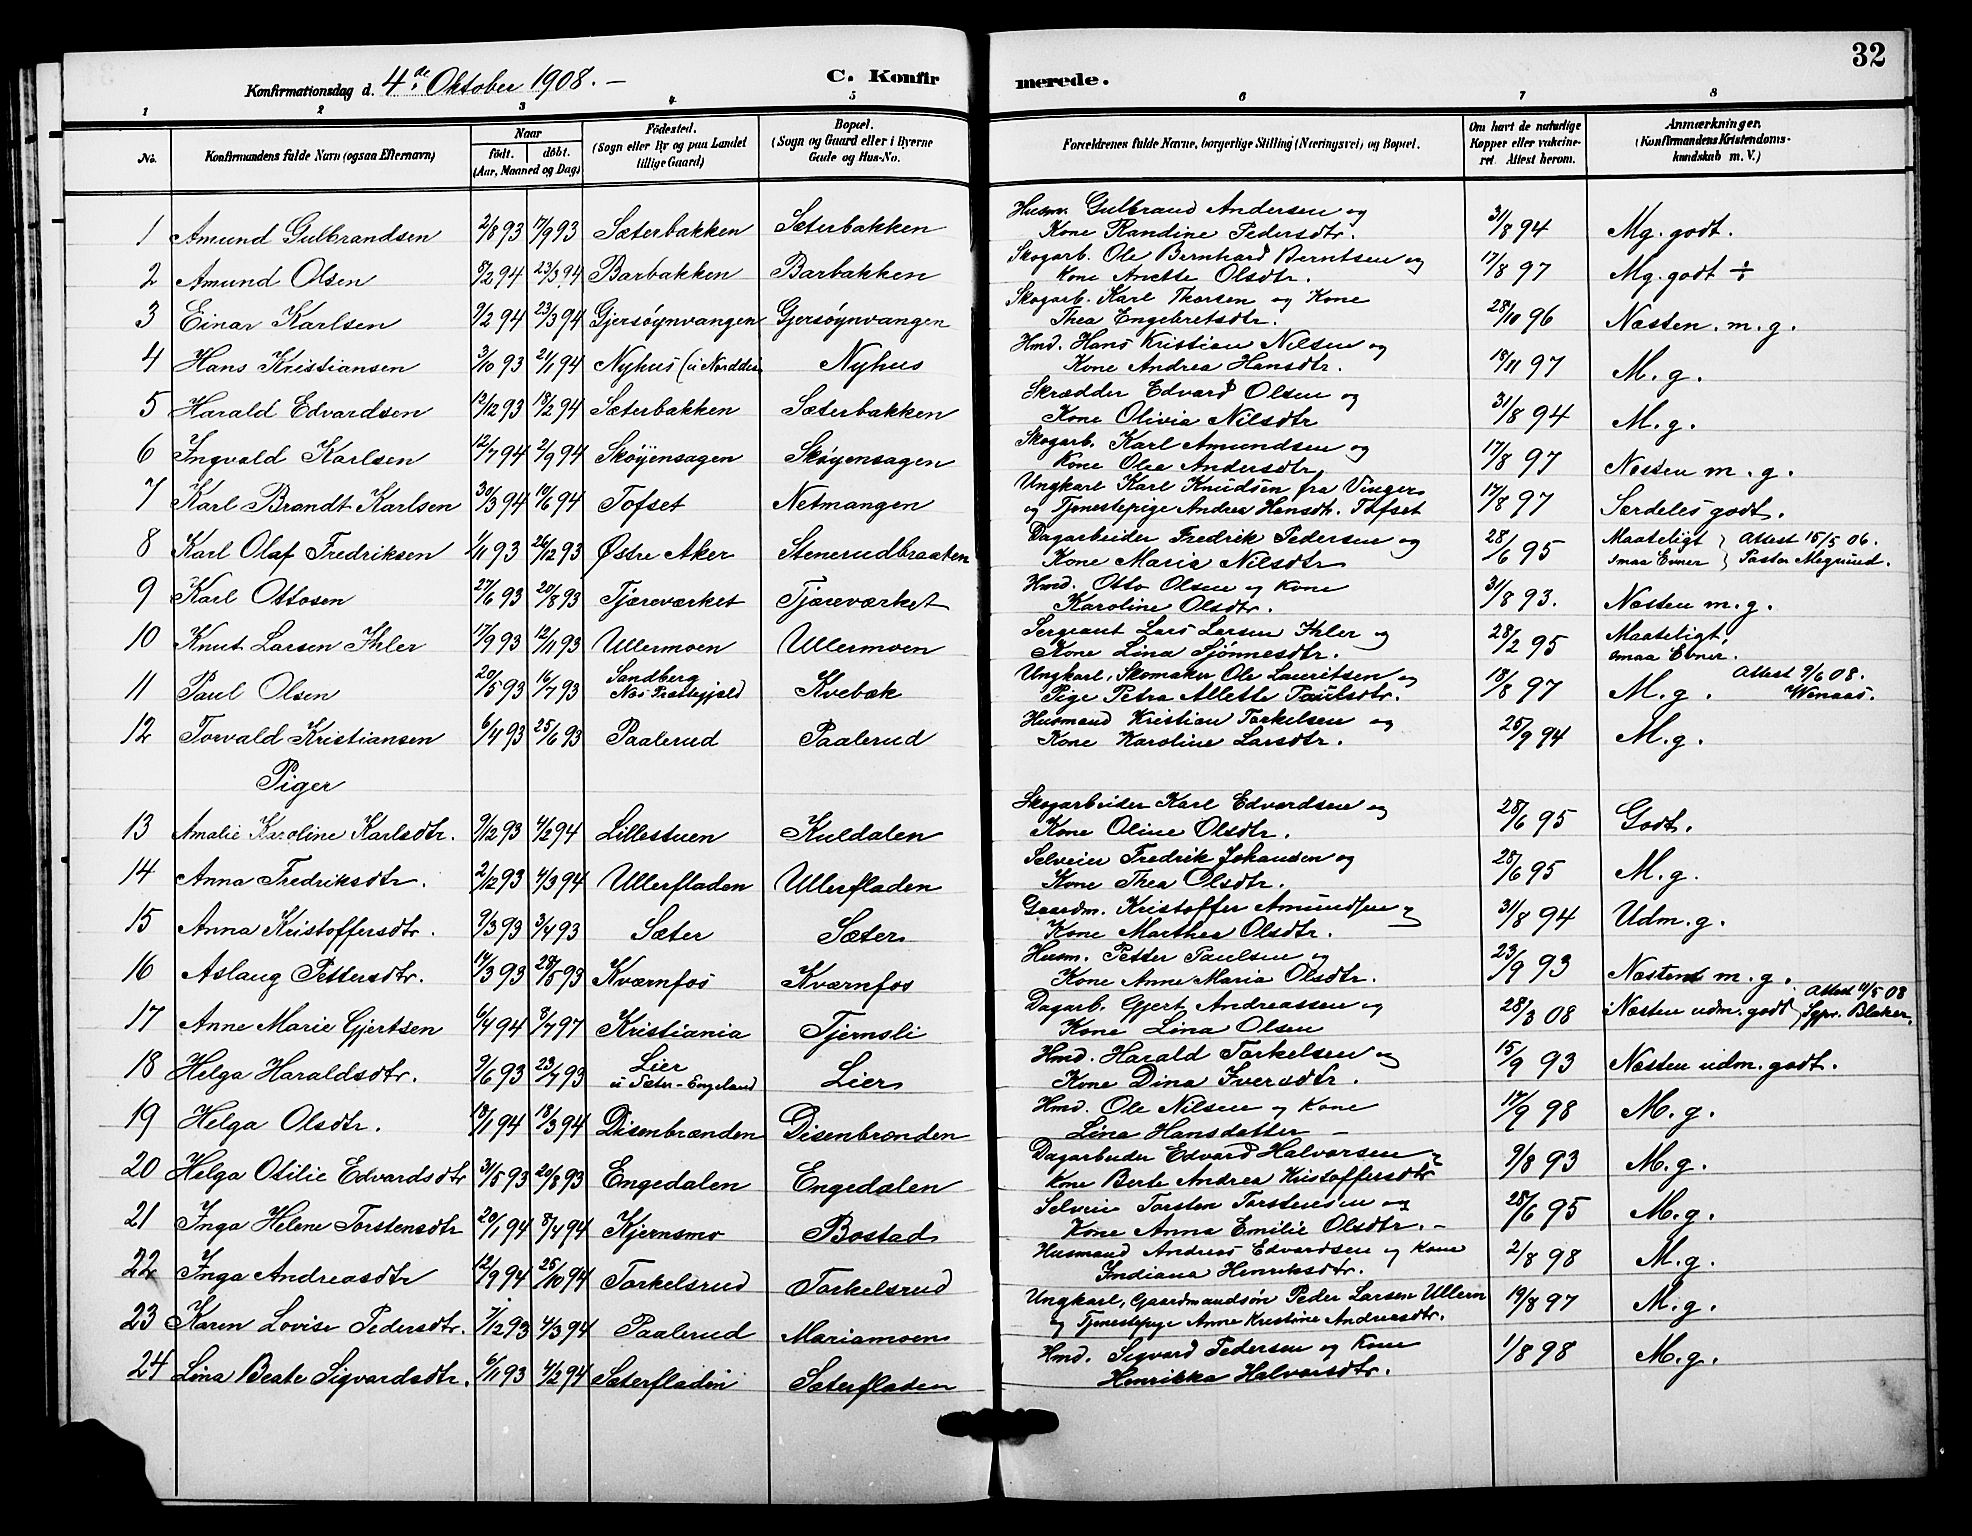 32
Konfirmationsdag d. 4de Oktober 1908. –
C. Konfirmerede.
1 2 3 4 5 6 7 8
No. Konfirmandens fulde Navn (ogsaa Efternavn) Naar født. døbt. (Aar, Maaned og Dag) Fødested. (Sogn eller By og paa Landet tillige Gaard) Bopæl. (Sogn og Gaard eller i Byerne Gade og Hus-No. Forældrenes fulde Navne, borgerlige Stilling (Næringsvei) og Bopæl. Om havt de naturlige Kopper eller vakcineret. Attest herom. Anmærkninger. (Konfirmandens Kristendomskundskab m. V.)
1 Amund Gulbrandsen 2/8 93 17/9 93 Sæterbakken Sæterbakken Husm. Gulbrand Andersen og Kone Randine Pedersdtr. 31/8 94 Mg. godt.
2 Amund Olsen 8/2 94 23/3 94 Barbakken Barbakken Skogarb. Ole Bernhard Berntsen og Kone Anette Olsdtr. 17/8 97 Mg. godt ÷
3 Einar Karlsen 9/2 94 23/3 94 Gjersøynvangen Gjersøynvangen Skogarb. Karl Thorsen og Kone Thea Engebretsdtr. 28/10 96 Næsten. m. g.
4 Hans Kristiansen 3/10 93 21/1 94 Nyhus Nyhus Hmd. Hans Kristian Nilsen og Kone Andrea Hansdtr. 18/11 97 M. g.
5 Harald Edvardsen 12/12 93 18/2 94 Sæterbakken Sæterbakken Skrædder Edvard Olsen og Kone Olivia Nilsdtr 31/8 94 M. g.
6 Ingvald Karlsen 12/7 94 2/9 94 Skøyensagen Skøyensagen Skogarb. Karl Amundsen og Kone Olea Andersdtr 17/8 97 Næsten m. g.
7 Karl Brandt Karlsen 30/3 94 10/6 94 Tofset Netmangen Ungkarl Karl Knudsen fra Vinger og Tjenestepige Andrea Hansdt. Tofset 17/8 97 Særdeles godt.
8 Karl Olaf Fredriksen 1/11 93 26/12 93 Østre Aker Stenerudbraaten Dagarbeider Fredrik Pedersen og Kone Maria Nilsdtr 28/6 95 Maateligt smaa Evner } Attest 15/5 06. Pastor
9 Karl Ottosen 27/6 93 20/8 93 Tjæreværket Tjæreværket Hmd. Otto Olsen og Kone Karoline Olsdtr. 31/8 93. Næsten m. g.
10 Knut Larsen Ihler 17/9 93 12/11 93 Ullermoen Ullermoen Sergeant Lars Larsen Ihler og Kone Lina Sjønnesdtr. 28/2 95 Maateligt smaa Evner.
11 Paul Olsen 20/5 93 16/7 93 Sandberg Nes Præstegjeld Kvebæk Ungkarl, Skomaker Ole Lauritsen og Pige Petra Allette Paulsdtr. 18/8 97 M. g. Attest 9/6 08. Wenaas.
12 Torvald Kristiansen 6/4 93 25/6 93 Paalerud Paalerud Husmand Kristian Torkelsen og Kone Karoline Larsdtr. 25/9 94 M. g.
Piger
13 Amalie Karoline Karlsdtr. 9/12 93 4/2 94 Lillestuen Kuldalen Skogarbeider Karl Edvardsen og Kone Oline Olsdtr. 28/6 95 Godt.
14 Anna Fredriksdtr. 2/12 93 4/3 94 Ullerfladen Ullerfladen Selveier Fredrik Johansen og Kone Thea Olsdtr. 28/6 95 M. g.
15 Anna Kristoffersdtr. 9/3 93 3/4 93 Sæter Sæter Gaardm. Kristoffer Amundsen og Kone Marthea Olsdtr. 31/8 94 Udm. g.
16 Aslaug Pettersdtr. 14/3 93 28/5 93 Kværnfos Kværnfos Husm. Petter Paulsen og Kone Anne Maria Olsdtr. 23/9 93 Næsten m. g.
17 Anne Marie Gjertsen 6/4 94 3/7 97 Kristiania Tjernsli Dagarb. Gjert Andreassen og Kone Lina Olsen 28/3 08 Næsten udm. godt } Attest 11/5 08 Sgpr. Blaker.
18 Helga Haraldsdtr. 9/6 93 23/7 93 Lier u Sæter-Engeland Lier Hmd. Harald Torkelsen og Kone Dina Iversdtr. 15/9 93 Næsten udm. godt.
19 Helga Olsdtr. 18/1 94 18/3 94 Disenbrænden Disenbrænden Hmd. Ole Nilsen og Kone Lina Hansdatter – 17/9 98 M. g.
20 Helga Otilie Edvardsdtr 31/5 93 20/8 93 Engedalen Engedalen Dagarbeider Edvard Halvorsen og Kone Berte Andrea Kristoffersdtr 9/8 93 M. g.
21 Inga Helene Torstensdtr 20/1 94 8/4 94 Kjernsmo Bostad Selveier Torsten Torstensen og Kone Anna Emilie Olsdtr. – 28/6 95 M. g.
22 Inga Andreasdtr 12/9 94 25/10 94 Torkelsrud Torkelsrud Husmand Andreas Edvardsen og Kone Indiana Henriksdtr. 2/8 98 M. g.
23 Karen Lovise Pedersdtr. 7/12 93 4/3 94 Paalerud Mariamoen Ungkarl, Gaardmandsøn Peder Larsen Ullern og Tjenestepige Anne Kristine Andreasdtr. 19/8 97 M. g.
24 Lina Beate Sigvardsdtr. 6/11 93 4/2 94 Sæterfladen Sæterfladen Hmd. Sigvard Pedersen og Kone Henrikka Halvorsdtr. 1/8 98 M. g.